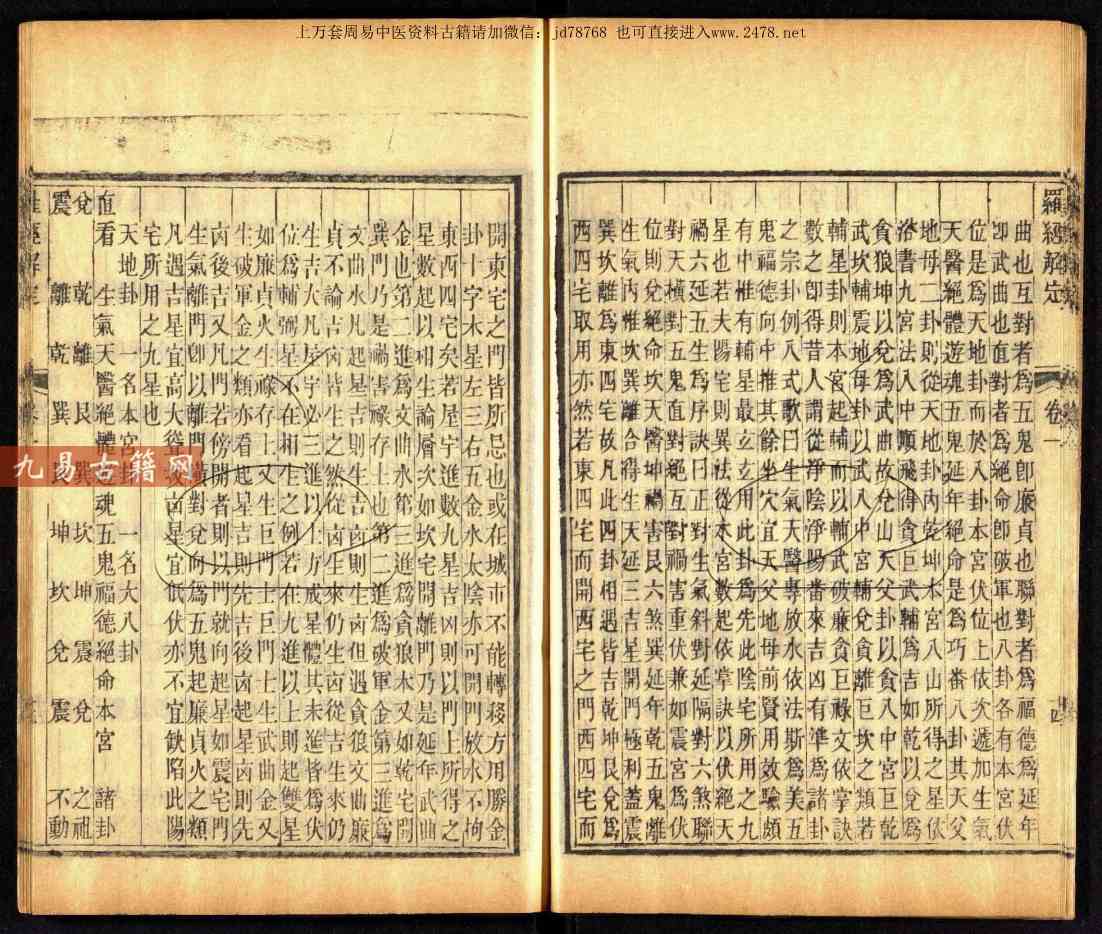 上万套周易中医资料古籍请加微信：jd78768 也可直接进入www.2478.net
羅經解定 卷一
曲也互對者為五鬼卽廉貞也聯對者為福德為延年
卽武曲也直對者為絕命卽破軍也八卦各有本宮伏
位是為天地卦而於八卦本宮伏位上依次遞加生氣
天醫絕體遊魂五鬼延年絕命是為巧番八卦其天父
地母二卦則從天地卦內乾坤本宮八山所得之星依
洛書九宮法入中順飛得貪巨武輔為吉如乾以兌為
貪狼坤以兌為武曲故兌山天父卦以貪入中宮巨乾
武坎輔震地母卦以武入中宮輔兌貪離巨坎之類若
輔星卦則本宮起輔而以輔武破廉貪巨祿文依掌訣
數之卽得昔人謂從淨陰淨陽番來吉凶有準為諸卦
之宗卦例八式歌曰生氣天醫專放水依法斯為美五
鬼福德向中推其餘坐穴宜天父地母前賢用效驗頗
有中惟有輔星最立立用此卦為先此陰宅所用之九
星也若夫陽宅則異祛從本宮數起依掌訣以伏絕天
禍六延五生為序訣曰正對生氣斜對延隔對六煞聯
對天橫對五鬼直對絕互對禍害重伏兼如震宮為伏
位則兌絕命坎天醫坤禍害艮六煞巽延年乾五鬼離
生氣內惟坎巽離合得生天延三吉星開門極利蓋震
巽坎離為東四宅故凡此四卦相遇皆吉乾坤艮兌為
西四宅取用亦然若東四宅而開西四宅之門西四宅而
開東宅之門皆所忌也或在城市不能轉移方用勝金
卦十字木星左三右五金水太陰亦可開門放水不拘
東西四宅矣若屋宇進數九星吉凶則以門上所得之
星數起以相生論層次如坎宅開離門乃是延年武曲
金也第二進為文曲水第三進為貪狼木又如乾宅開
巽門乃是禍害祿存土也第二進為破軍金第三進為
文曲水凡起星吉則生吉起星凶則生凶但遇貪狼文曲廉
貞不論吉凶皆生之然從凶生來仍生凶從吉生來仍
生吉大凡房宇必三進以上方成星體其未進皆為伏
位為輔弼星不在相生之例若在九進以上則起雙星
如廉貞火生祿存土又生巨門土巨門土生武曲金又
生破軍金之類亦看起星吉則先吉後凶起星凶則先
凶後吉又凡傍開者則以門就向起星如震宅門
生氣離門卽以離門橫對兌向為五鬼起廉貞火之類
凡遇吉星宜高大聳拔凶星宜低伏亦不宜缺陷此陽
宅所用之九星也
天地卦 一名本宮卦 一名大八卦
直看 生氣天醫絕體遊魂五鬼福德絕命本宮 諸卦
兌 乾 離 艮 巽 坎 坤 震 兌 之祖
震 離 乾 巽 艮 坤 坎 兌 震 不動
九易古籍网